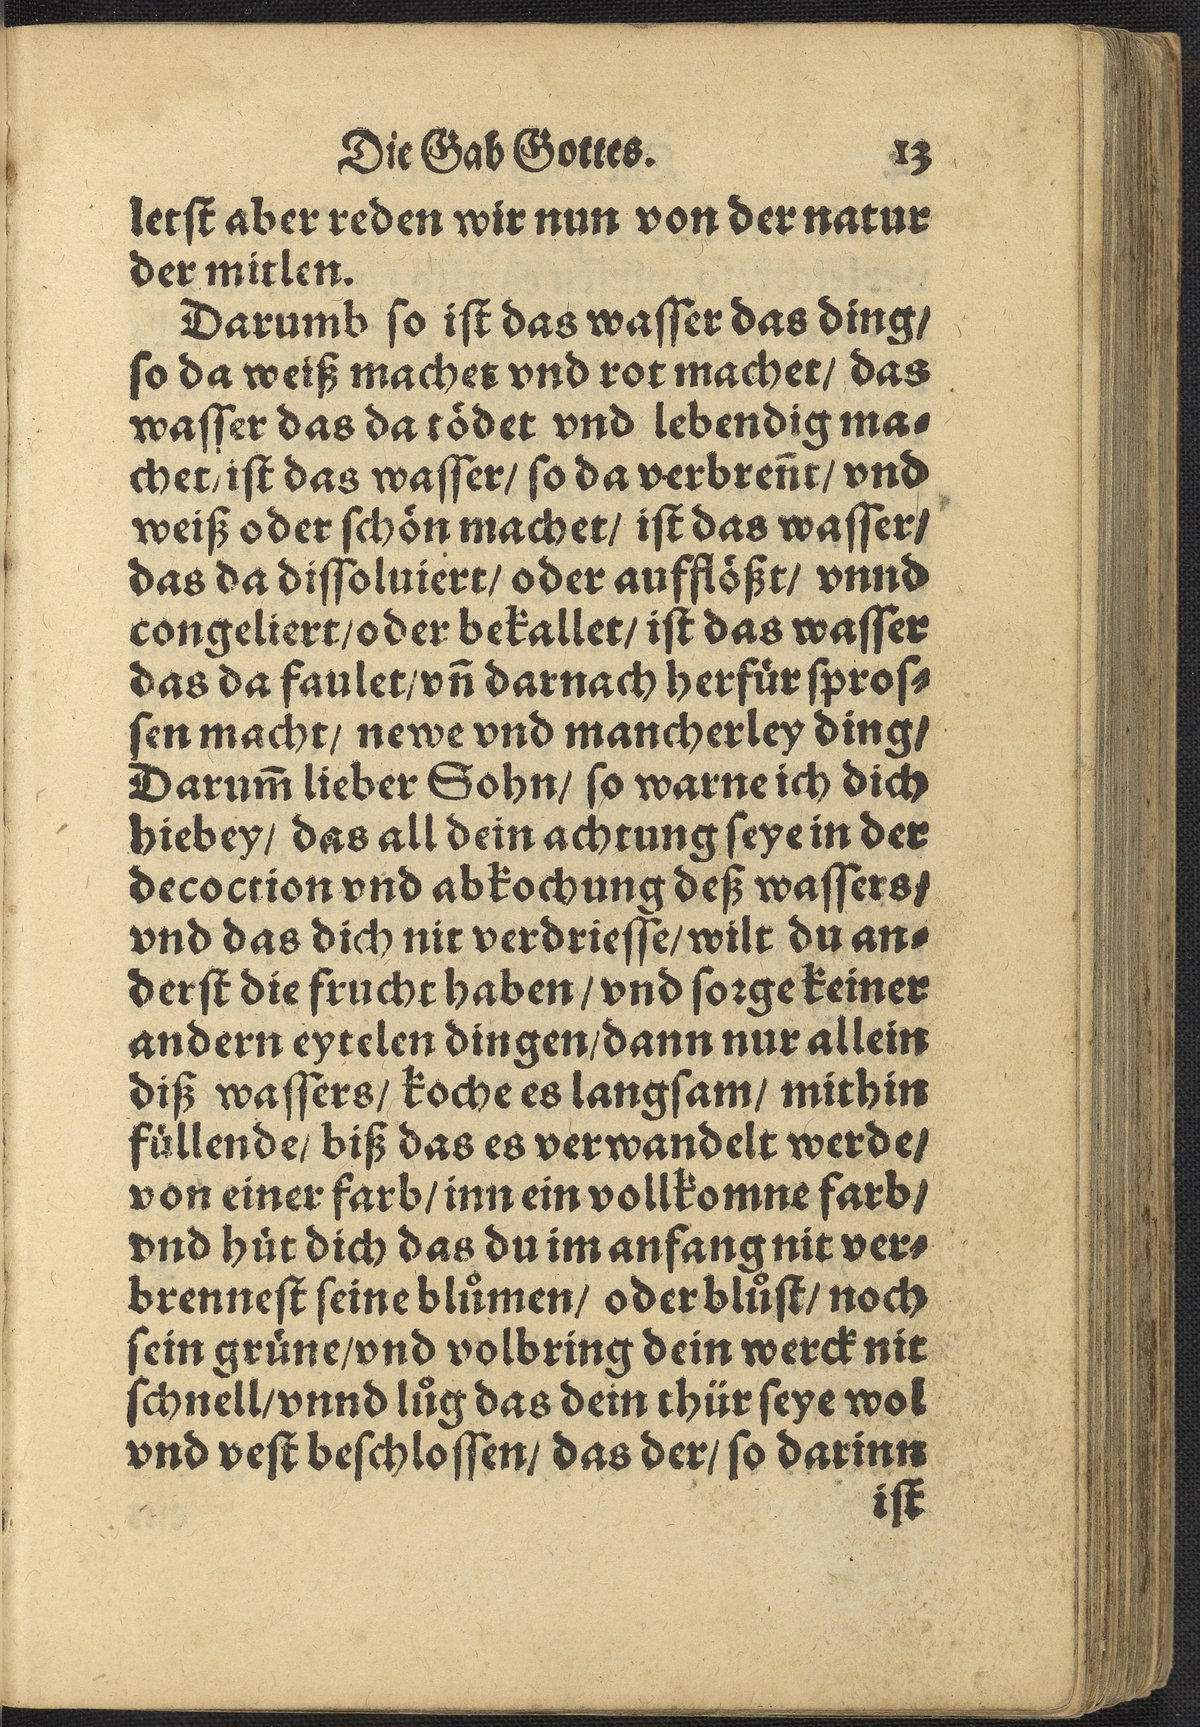 Die Gab Gottes. 13
letst aber reden wir nun von der natur
der mitlen.
Darumb so ist das wasser das ding/
so da weiß machet vnd rot machet/ das
wasser das da tödet vnd lebendig ma⸗
chet/ ist das wasser/ so da verbreñt/ vnd
weiß oder schön machet/ ist das wasser/
das da dissoluiert/ oder aufflößt/ vnnd
congeliert/ oder bekallet/ ist das wasser
das da faulet/ vñ darnach herfür spros⸗
sen macht/ newe vnd mancherley ding/
Darum̄ lieber Sohn/ so warne ich dich
hiebey/ das all dein achtung seye in der
decoction vnd abkochung deß wassers/
vnd das dich nit verdriesse/ wilt du an⸗
derst die frucht haben/ vnd sorge keiner
andern eytelen dingen/ dann nur allein
diß wassers/ koche es langsam/ mithin
füllende/ biß das es verwandelt werde/
von einer farb/ inn ein vollkomne farb/
vnd hüt dich das du im anfang nit ver⸗
brennest seine blůmen/ oder blůst/ noch
sein grüne/ vnd volbring dein werck nit
schnell/ vnnd lůg das dein thür seye wol
vnd vest beschlossen/ das der/ so darinn
ist